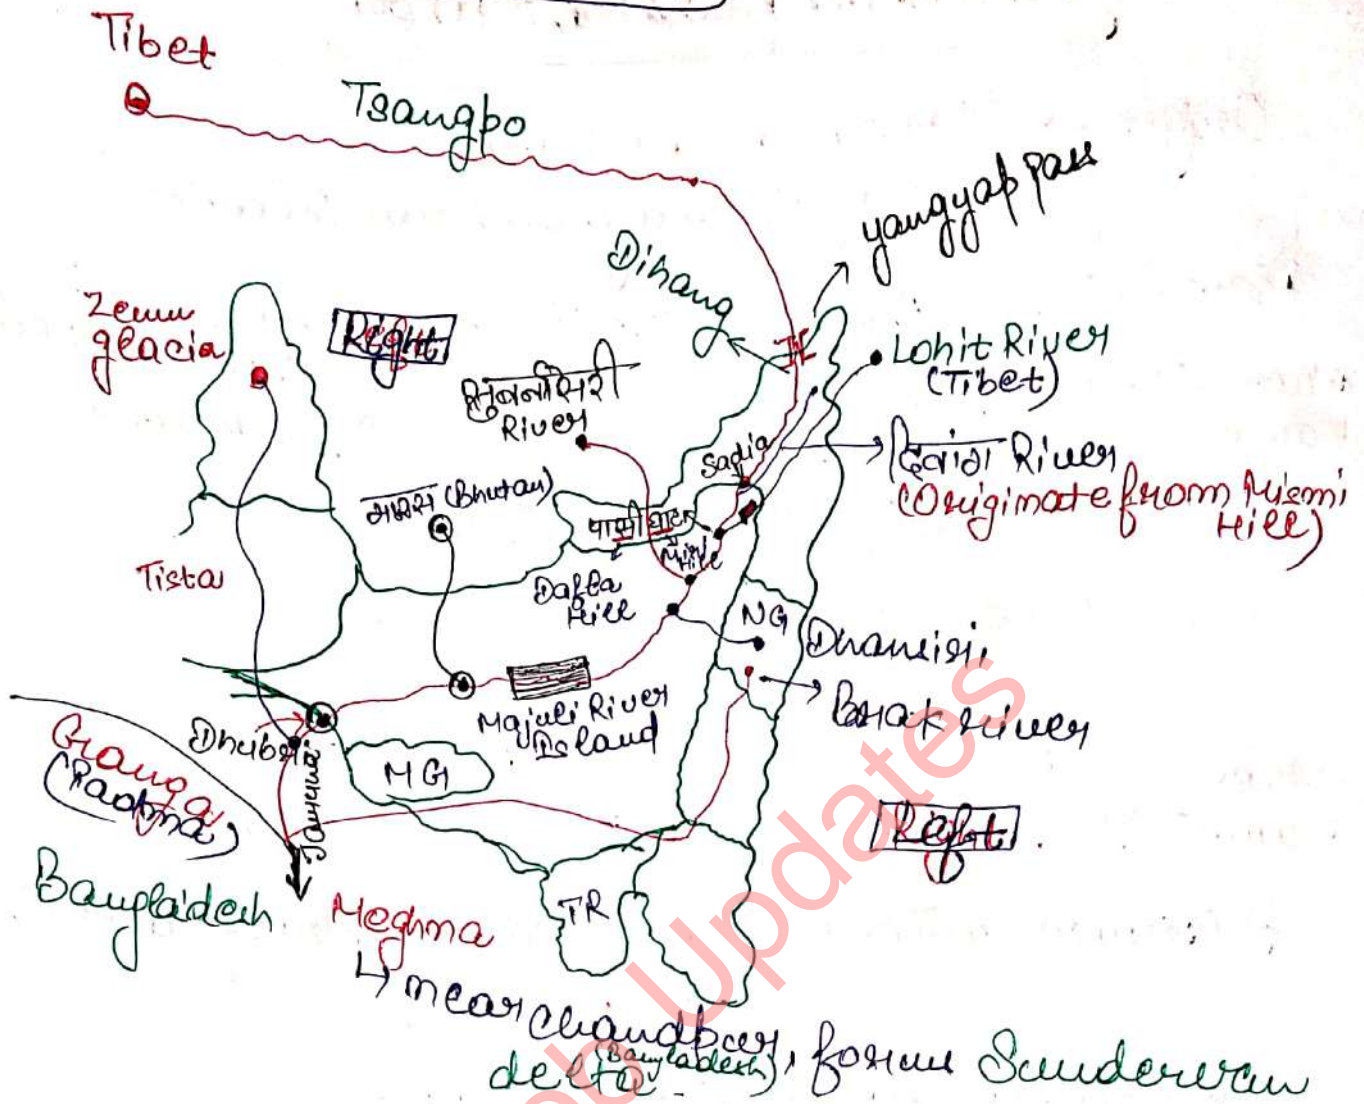 Tibet
Tsangpo
yangyap pass
Dihang
Zemu
glacia
Right
सुबनसिरी
River
Lohit River
(Tibet)
Sadia
दिवांग River
(Originate from Mismi
Hill)
मानस (Bhutan)
पासीघाट
Miri
Hill
Dafla
Hill
Tista
NG
Dhansiri
Brak River
Majuli River
Island
Dhubri
MG
Jamuna
Ganga
(Padma)
Bangladesh
Meghna
TR
↳ near Chandpur, form Sunderwan
(Bangladesh)
delta
Updates